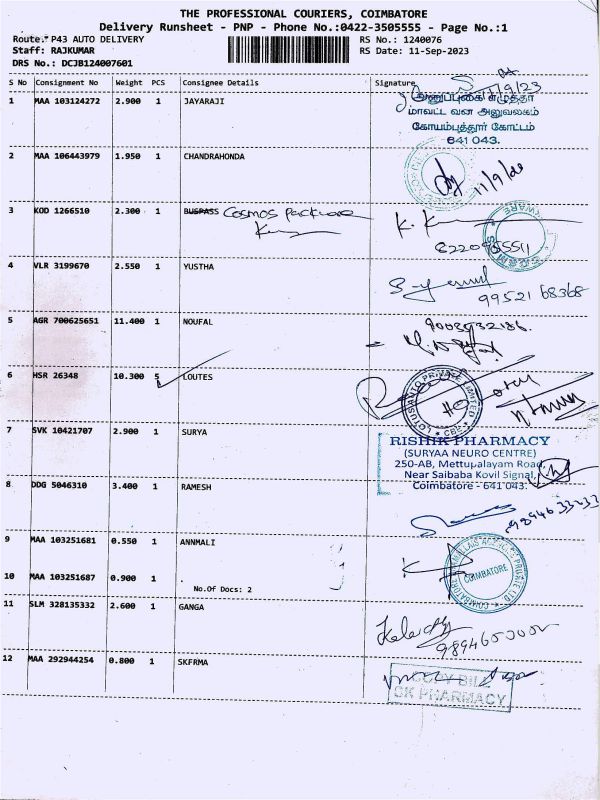 THE PROFESSIONAL COURIERS, COIMBATORE
Delivery Runsheet - PNP - Phone No.:0422-3505555 - Page No.:1
Route: P43 AUTO DELIVERY
RS No.: 1240076
Staff: RAJKUMAR
RS Date: 11-Sep-2023
DRS No.: DCJB124007601
S No Consignment No Weight PCS Consignee Details Signature
1 MAA 103124272 2.900 1 JAYARAJI
மாவட்ட வன அலுவலகம்
கோயம்புத்தூர் கோட்டம்
641 043.
2 MAA 106443979 1.950 1 CHANDRAHONDA
11/9/23
3 KOD 1266510 2.300 1 BUSPASS Cosmos Packware
4 VLR 3199670 2.550 1 YUSTHA
99521 68368
5 AGR 700625651 11.400 1 NOUFAL
9008932186.
6 HSR 26348 10.300 5 LOUTES
LOTUS AUTO PRIVATE LIMITED
HO
CBE
7 SVK 10421707 2.900 1 SURYA
RISHIK PHARMACY
(SURYAA NEURO CENTRE)
250-AB, Mettupalayam Road,
Near Saibaba Kovil Signal,
Coimbatore - 641 043.
8 DDG 5046310 3.400 1 RAMESH
9894633233
9 MAA 103251681 0.550 1 ANNMALI
COIMBATORE
10 MAA 103251687 0.900 1
No.Of Docs: 2
11 SLM 328135332 2.600 1 GANGA
12 MAA 292944254 0.800 1 SKFRMA
COPY BILL
SK PHARMACY